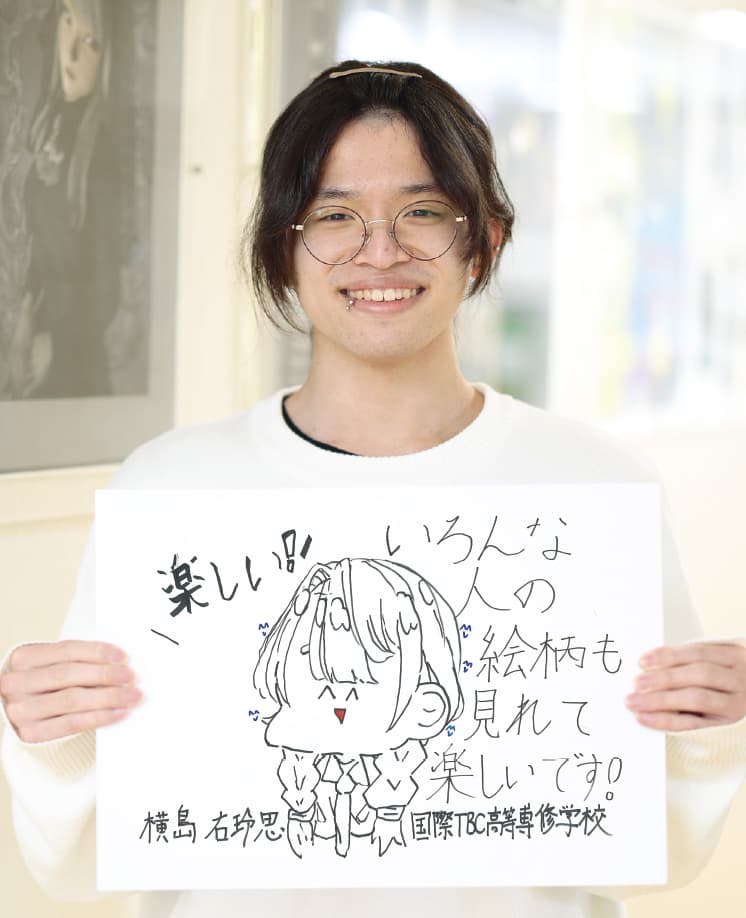 楽しい!!
いろんな
人の
絵柄も
見れて
楽しいです!
横島 右玲思
国際TBC高等専修学校